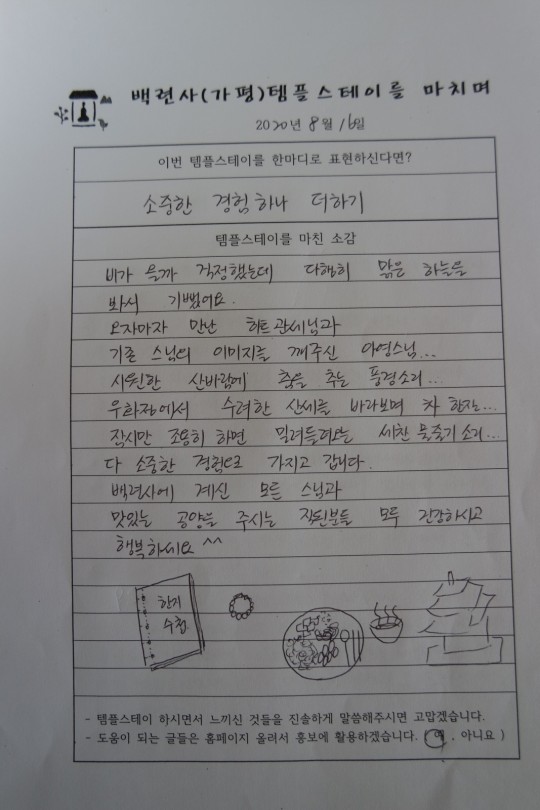 백련사(가평)템플스테이를 마치며
2020년 8월 16일
이번 템플스테이를 한마디로 표현하신다면?
소중한 경험 하나 더하기
템플스테이를 마친 소감
비가 올까 걱정했는데 다행히 맑은 하늘을
봐서 기뻤어요.
오자마자 만난 하트관세님과
기존 스님의 이미지를 깨주신 아영스님...
시원한 산바람에 춤을 추는 풍경소리...
우화정에서 수려한 산세를 바라보며 차 한잔...
잠시만 조용히 하면 밀려들려오는 세찬 물줄기 소리...
다 소중한 경험으로 가지고 갑니다.
백련사에 계신 모든 스님과
맛있는 공양을 주시는 직원분들 모두 건강하시고
행복하세요 ^^
한지
수첩
- 템플스테이 하시면서 느끼신 것들을 진솔하게 말씀해주시면 고맙겠습니다.
- 도움이 되는 글들은 홈페이지 올려서 홍보에 활용하겠습니다. ( 예 , 아니요 )